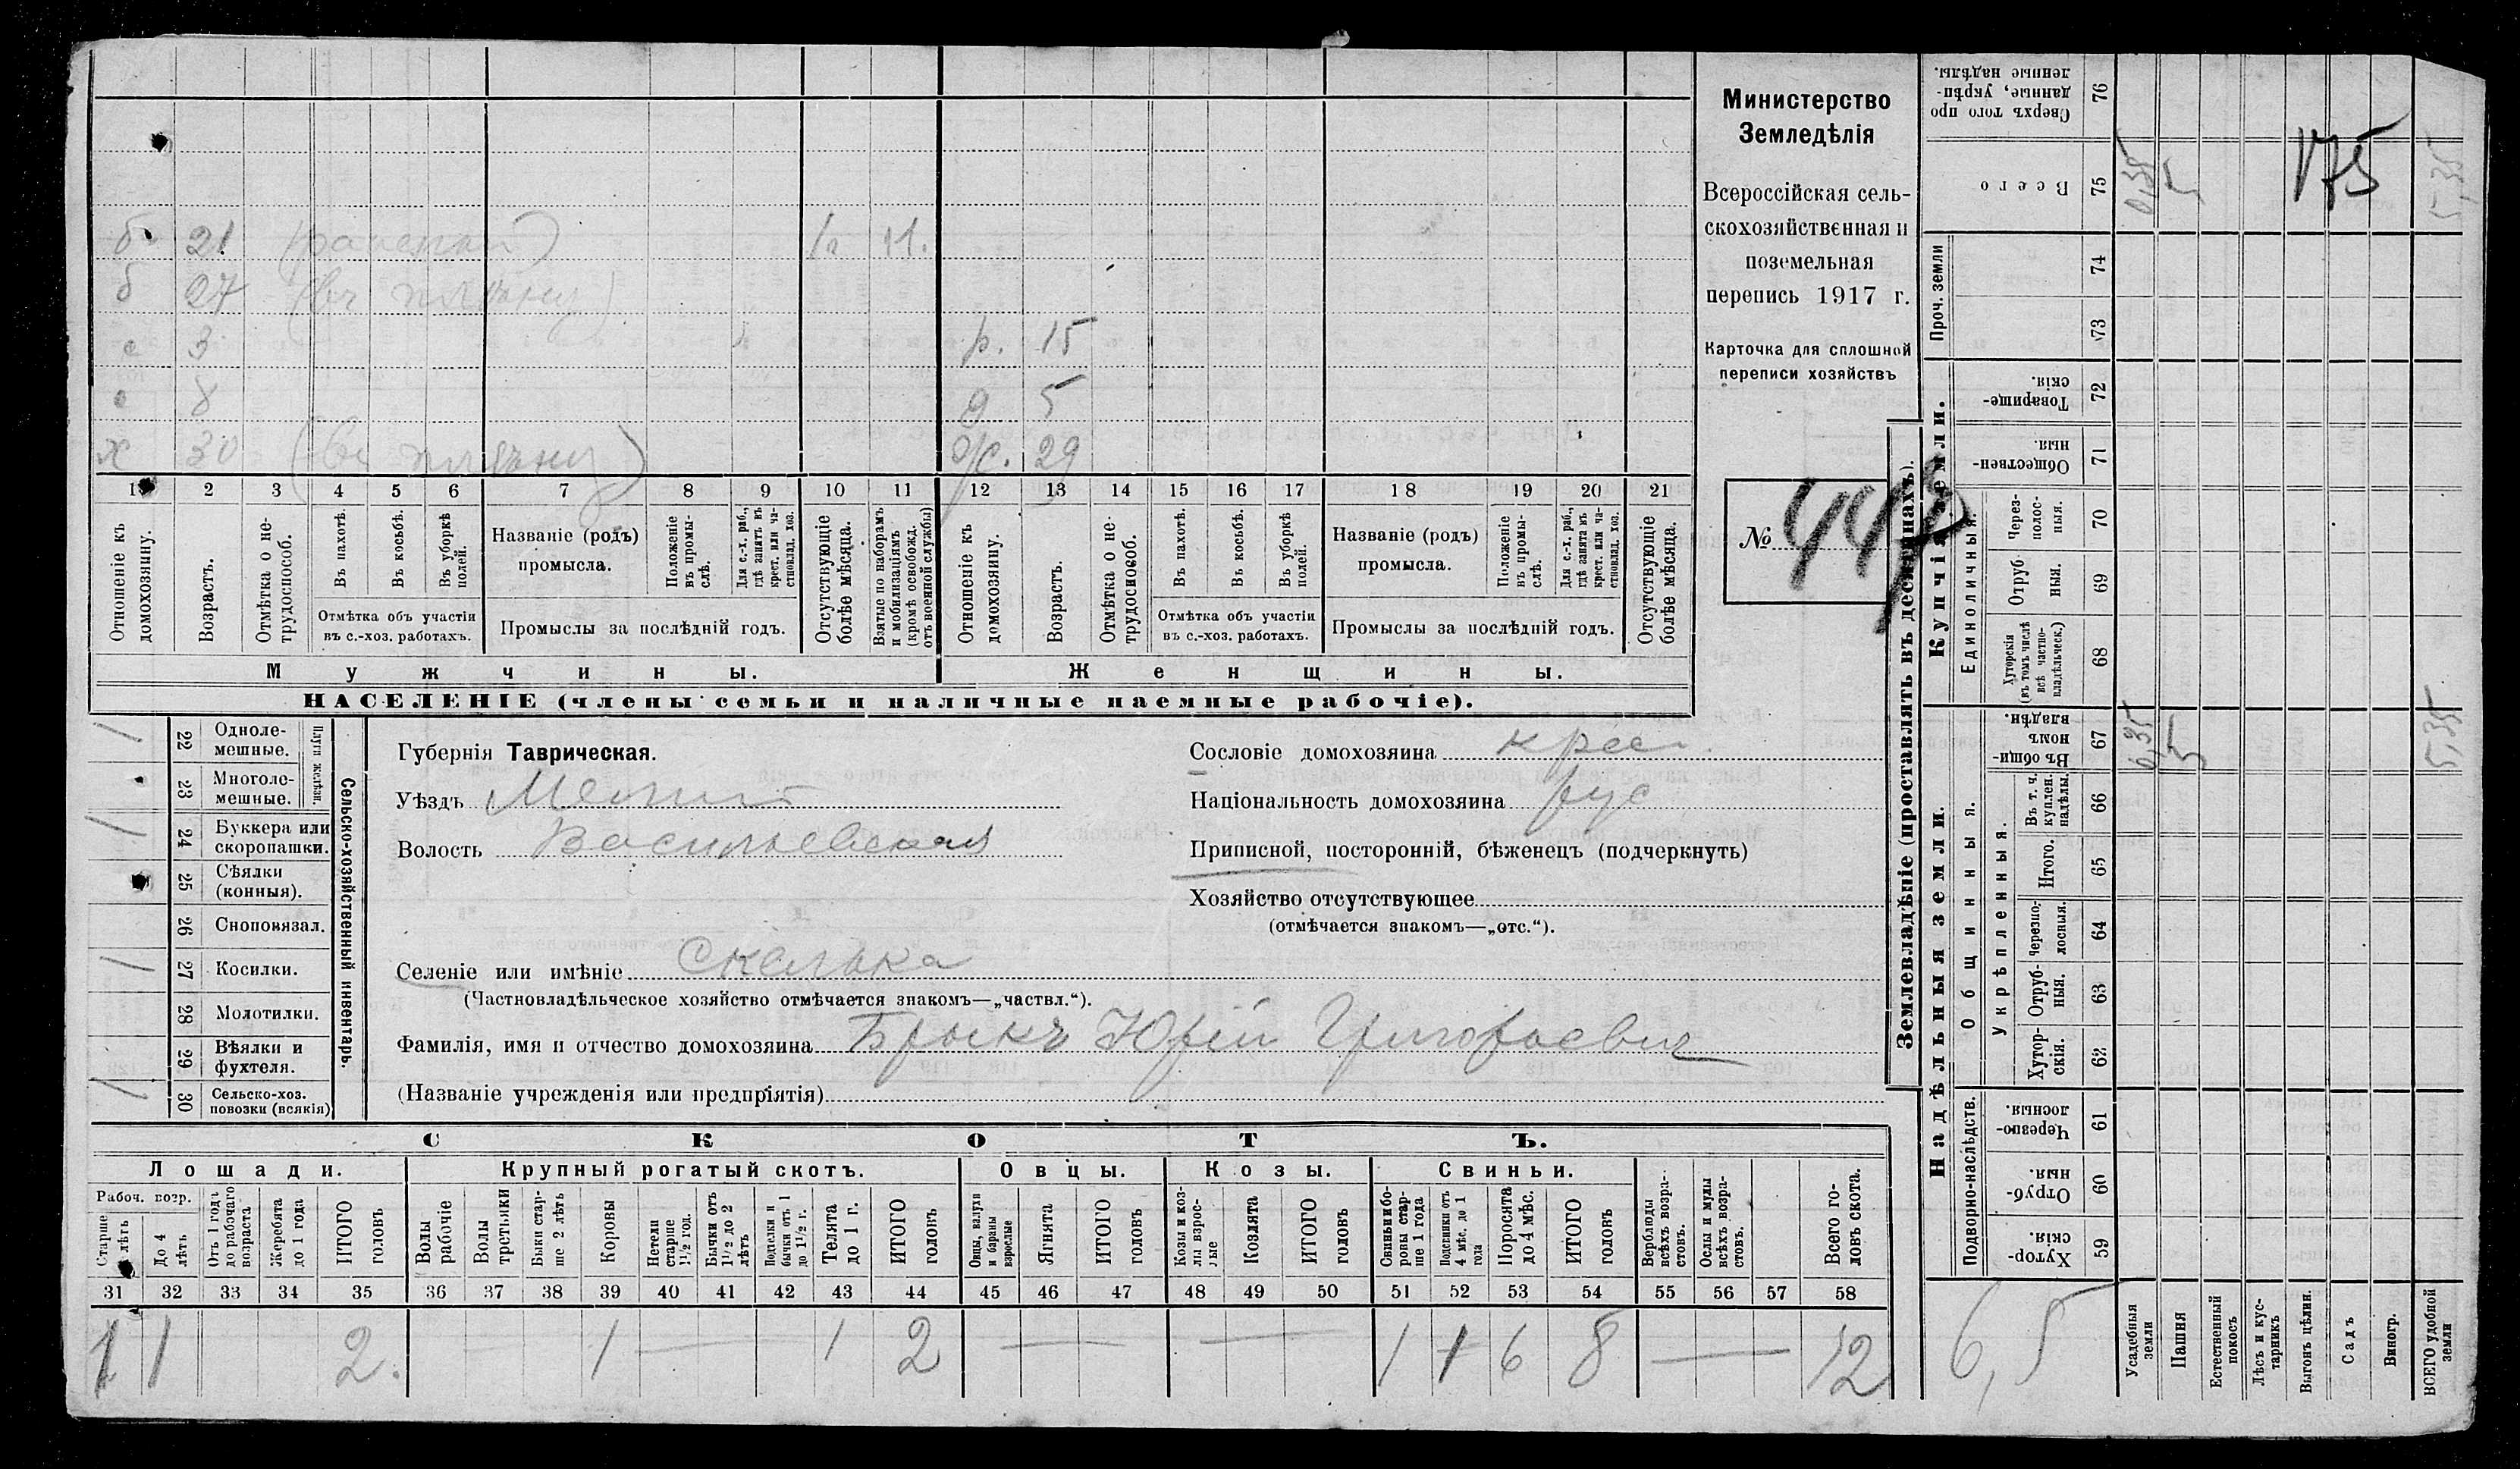 Министерство
Земледѣлія
Всероссійская сель-
скохозяйственная и
поземельная
перепись 1917 г.
Карточка для сплошной
переписи хозяйствъ
№ 447
б. 21 11.
б 27 (въ плѣну)
с 3 р. 15
с 8 д 5
х 30 (въ плѣну) 29
1 2 3 4 5 6 7 8 9 10 11 12 13 14 15 16 17 18 19 20 21
Отношеніе къ домохозяину.
Возрастъ.
Отмѣтка о не-трудоспособ.
Въ пахотѣ.
Въ косьбѣ.
Въ уборкѣ полей.
Отмѣтка объ участіи
въ с.-хоз. работахъ.
Названіе (родъ)
промысла.
Положеніе въ промы-слѣ.
Для с.-х. раб., гдѣ занятъ въ крест. или ча-стновлад. хоз.
Промыслы за послѣдній годъ.
Отсутствующіе болѣе мѣсяца.
Взятые по наборамъ и мобилизаціямъ (кромѣ освобожд. отъ военной службы)
Отношеніе къ домохозяину.
Возрастъ.
Отмѣтка о не-трудоспособ.
Въ пахотѣ.
Въ косьбѣ.
Въ уборкѣ полей.
Отмѣтка объ участіи
въ с.-хоз. работахъ.
Названіе (родъ)
промысла.
Положеніе въ промы-слѣ.
Для с.-х. раб., гдѣ занята въ крест. или ча-стновлад. хоз.
Промыслы за послѣдній годъ.
Отсутствующіе болѣе мѣсяца.
Мужчины.
Женщины.
НАСЕЛЕНІЕ (члены семьи и наличные наемные рабочіе).
Сельско-хозяйственный инвентарь.
Плуги желѣзн.
/ 22 Одноле-мешные.
23 Многоле-мешные.
/ 24 Буккера или скоропашки.
25 Сѣялки (конныя).
26 Сноповязал.
/ 27 Косилки.
28 Молотилки.
29 Вѣялки и фухтеля.
/ 30 Сельско-хоз. повозки (всякія)
Губернія Таврическая.
Уѣздъ Мелит
Волость Васильевская
Селеніе или имѣніе Скелька
(Частновладѣльческое хозяйство отмѣчается знакомъ—„частвл.“).
Фамилія, имя и отчество домохозяина Брыкъ Юрій Григорьевич
(Названіе учрежденія или предпріятія)
Сословіе домохозяина крес.
Національность домохозяина рус
Приписной, посторонній, бѣженецъ (подчеркнуть)
Хозяйство отсутствующее
(отмѣчается знакомъ—„отс.“).
СКОТЪ.
Лошади. Крупный рогатый скотъ. Овцы. Козы. Свиньи.
Рабоч. возр.
Старше 4 лѣтъ
До 4 лѣтъ
Отъ 1 года до рабочаго возраста
Жеребята до 1 года
ИТОГО головъ
Волы рабочіе
Волы третьяки
Быки стар-ше 2 лѣтъ
Коровы
Нетели старше 1½ год.
Бычки отъ 1½ до 2 лѣтъ
Подтелки и бычки отъ 1 до 1½ г.
Телята до 1 г.
ИТОГО головъ
Овцы, валухи и бараны взрослые
Ягнята
ИТОГО головъ
Козы и коз-лы взрос-лые
Козлята
ИТОГО головъ
Свиньи и бо-ровы стар-ше 1 года
Подсвинки отъ 4 мѣс. до 1 года
Поросята до 4 мѣс.
ИТОГО головъ
Верблюды всѣхъ возра-стовъ.
Ослы и мулы всѣхъ возра-стовъ.
Всего го-ловъ скота.
31 32 33 34 35 36 37 38 39 40 41 42 43 44 45 46 47 48 49 50 51 52 53 54 55 56 57 58
1 1 2. 1 — 1 2 — — 1 1 6 8 — 12
Землевладѣніе (проставлять въ десятинахъ).
Надѣльныя земли. Купчія земли.
Подворно-наслѣдств.
Общинныя.
Укрѣпленныя.
Единоличныя.
Проч. земли
Сверхъ того про данные, укрѣп-ленные надѣлы. 76
Всего 75 0,35 5 175 5,35
74
73
Товарище-скія. 72
Обществен-ныя. 71
Через-полос-ныя. 70
Отруб ныя. 69
Хуторскія (въ томъ числѣ всѣ частно-владѣльческ.) 68
Въ общи-номъ владѣн. 67 0,35 5 5,35
Въ т. ч. куплен. надѣлы. 66
Итого. 65
Черезпо-лосныя. 64
Отруб-ныя. 63
Хутор-скія. 62
Черезпо-лосныя. 61
Отруб-ныя. 60
Хутор-скія. 59
6,5
Усадебныя земли
Пашня
Естественный покосъ
Лѣсъ и кус-тарникъ
Выгонъ цѣлин.
Садъ
Виногр.
ВСЕГО удобной земли